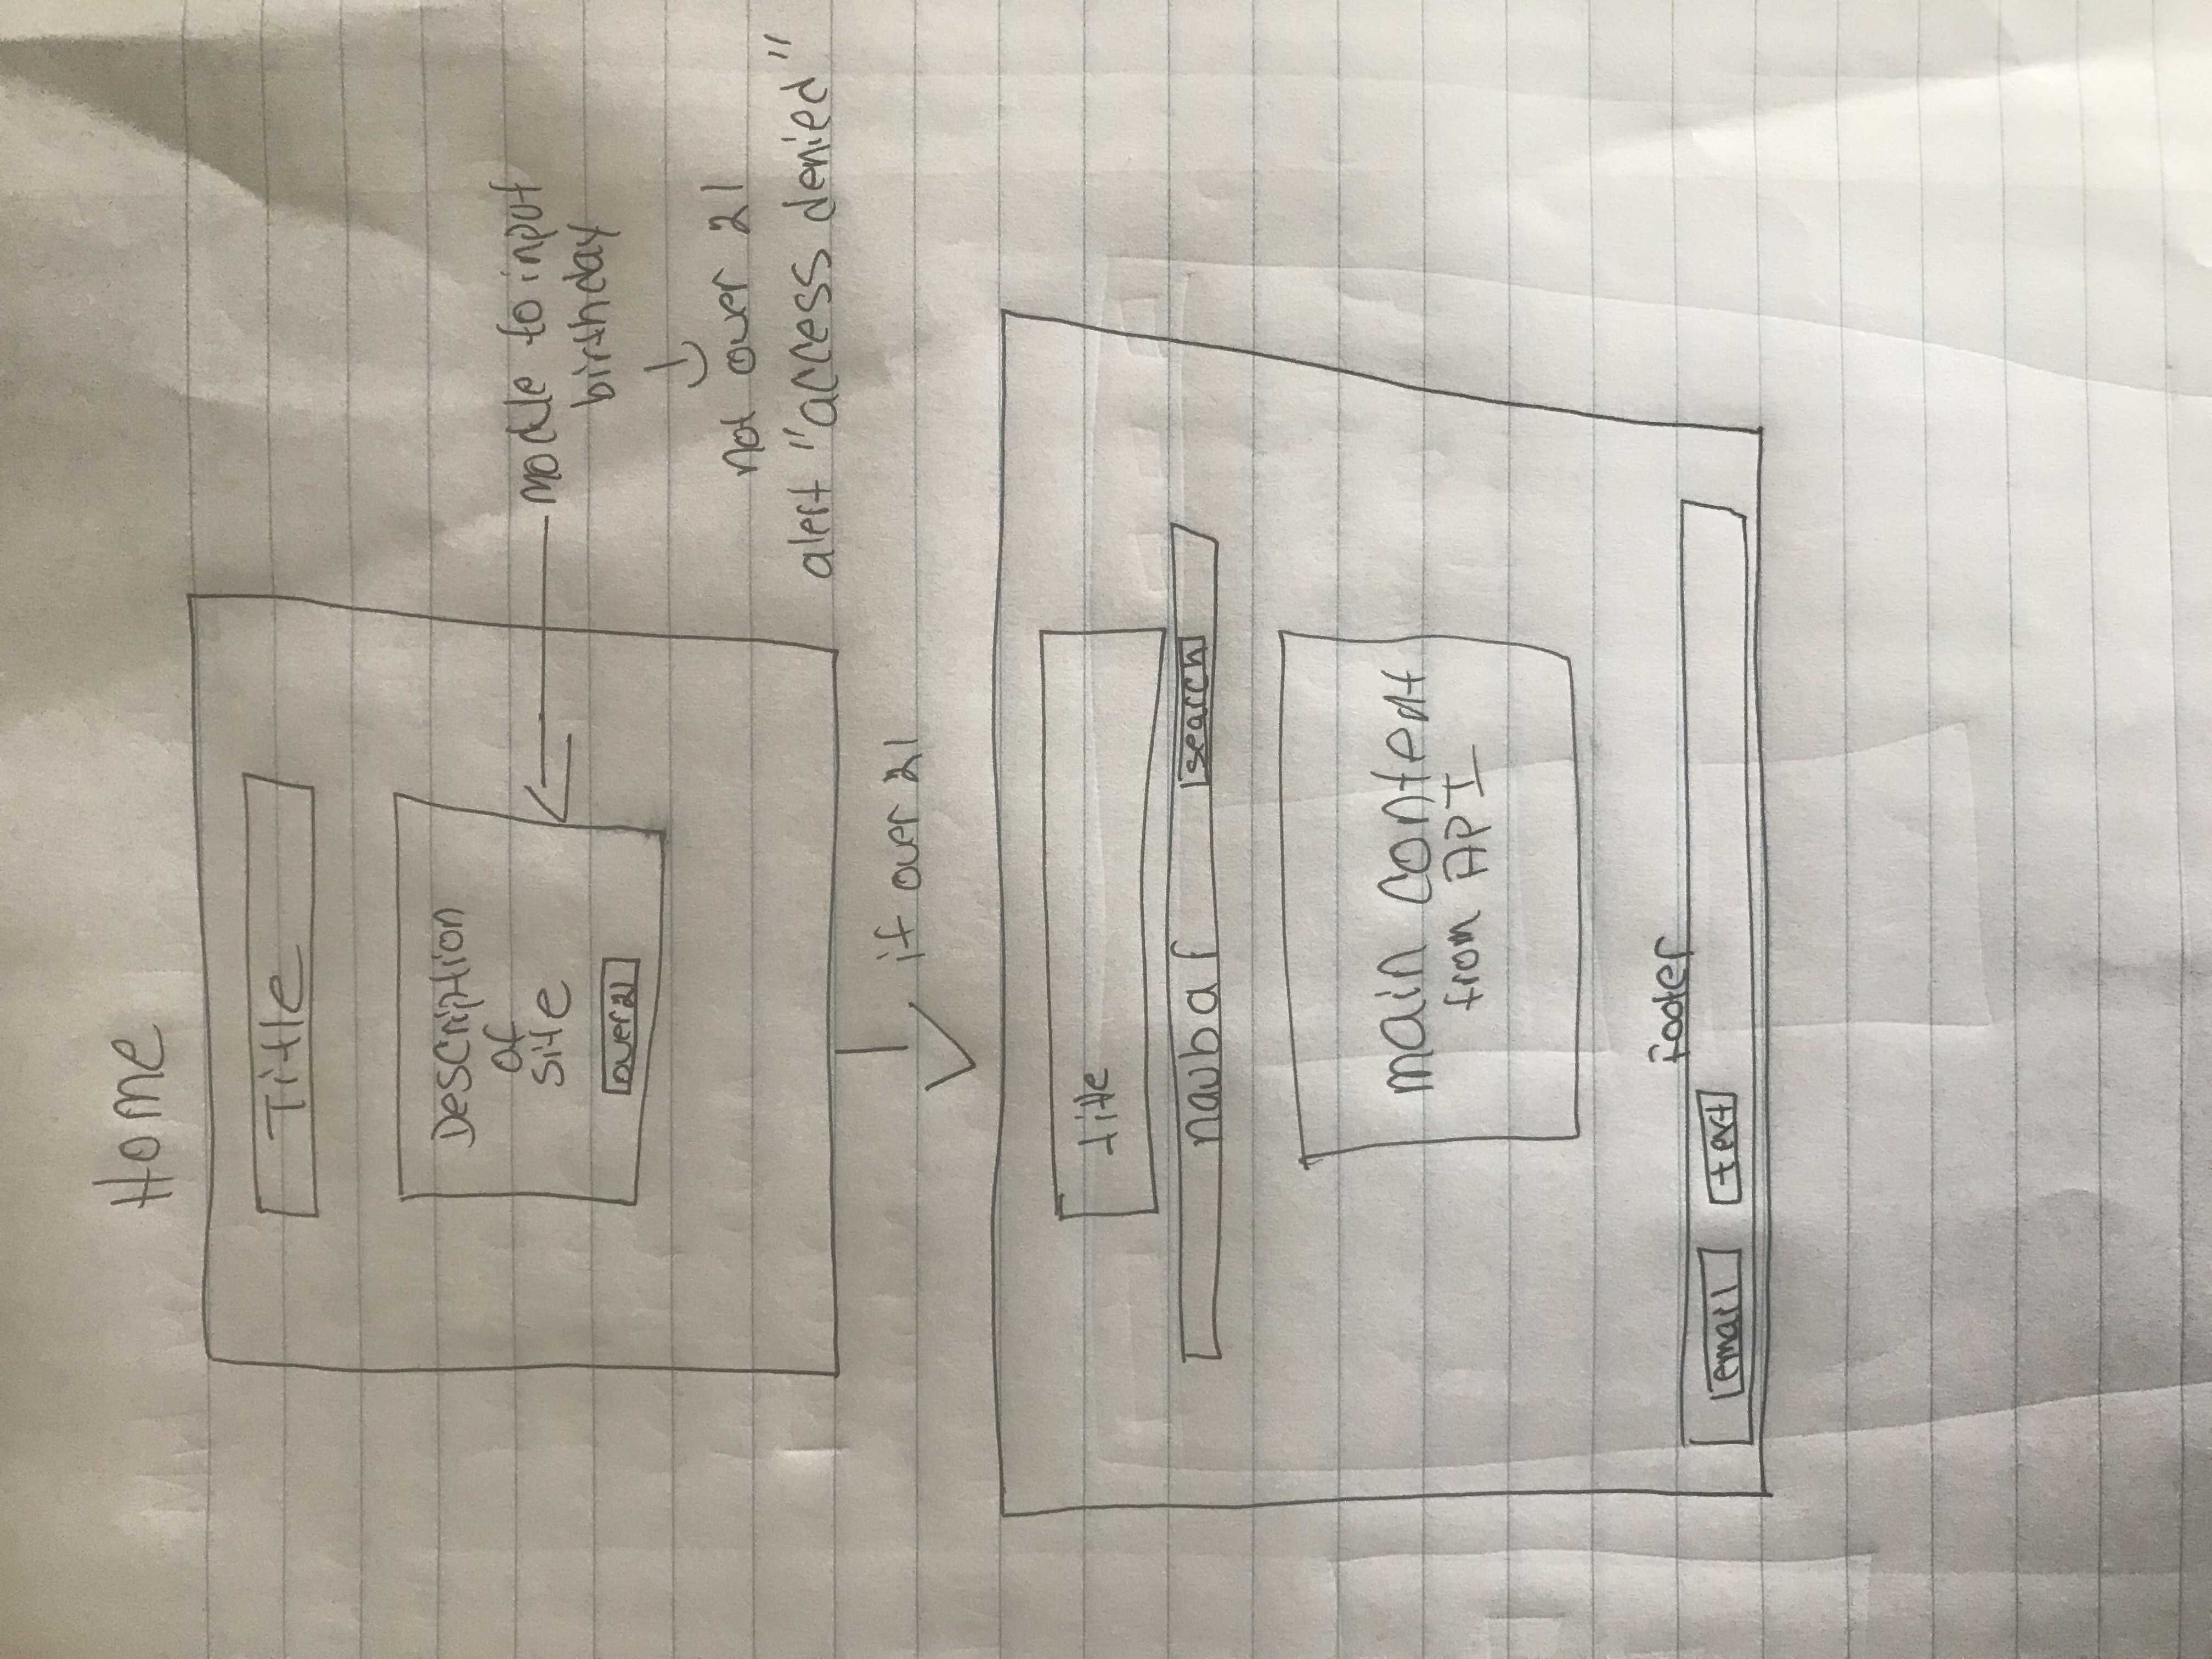 Home
Title
Description
of
site
over 21
module to input
birthday
not over 21
alert "access denied"
if over 21
title
navbar
search
main content
from API
Footer
email
text